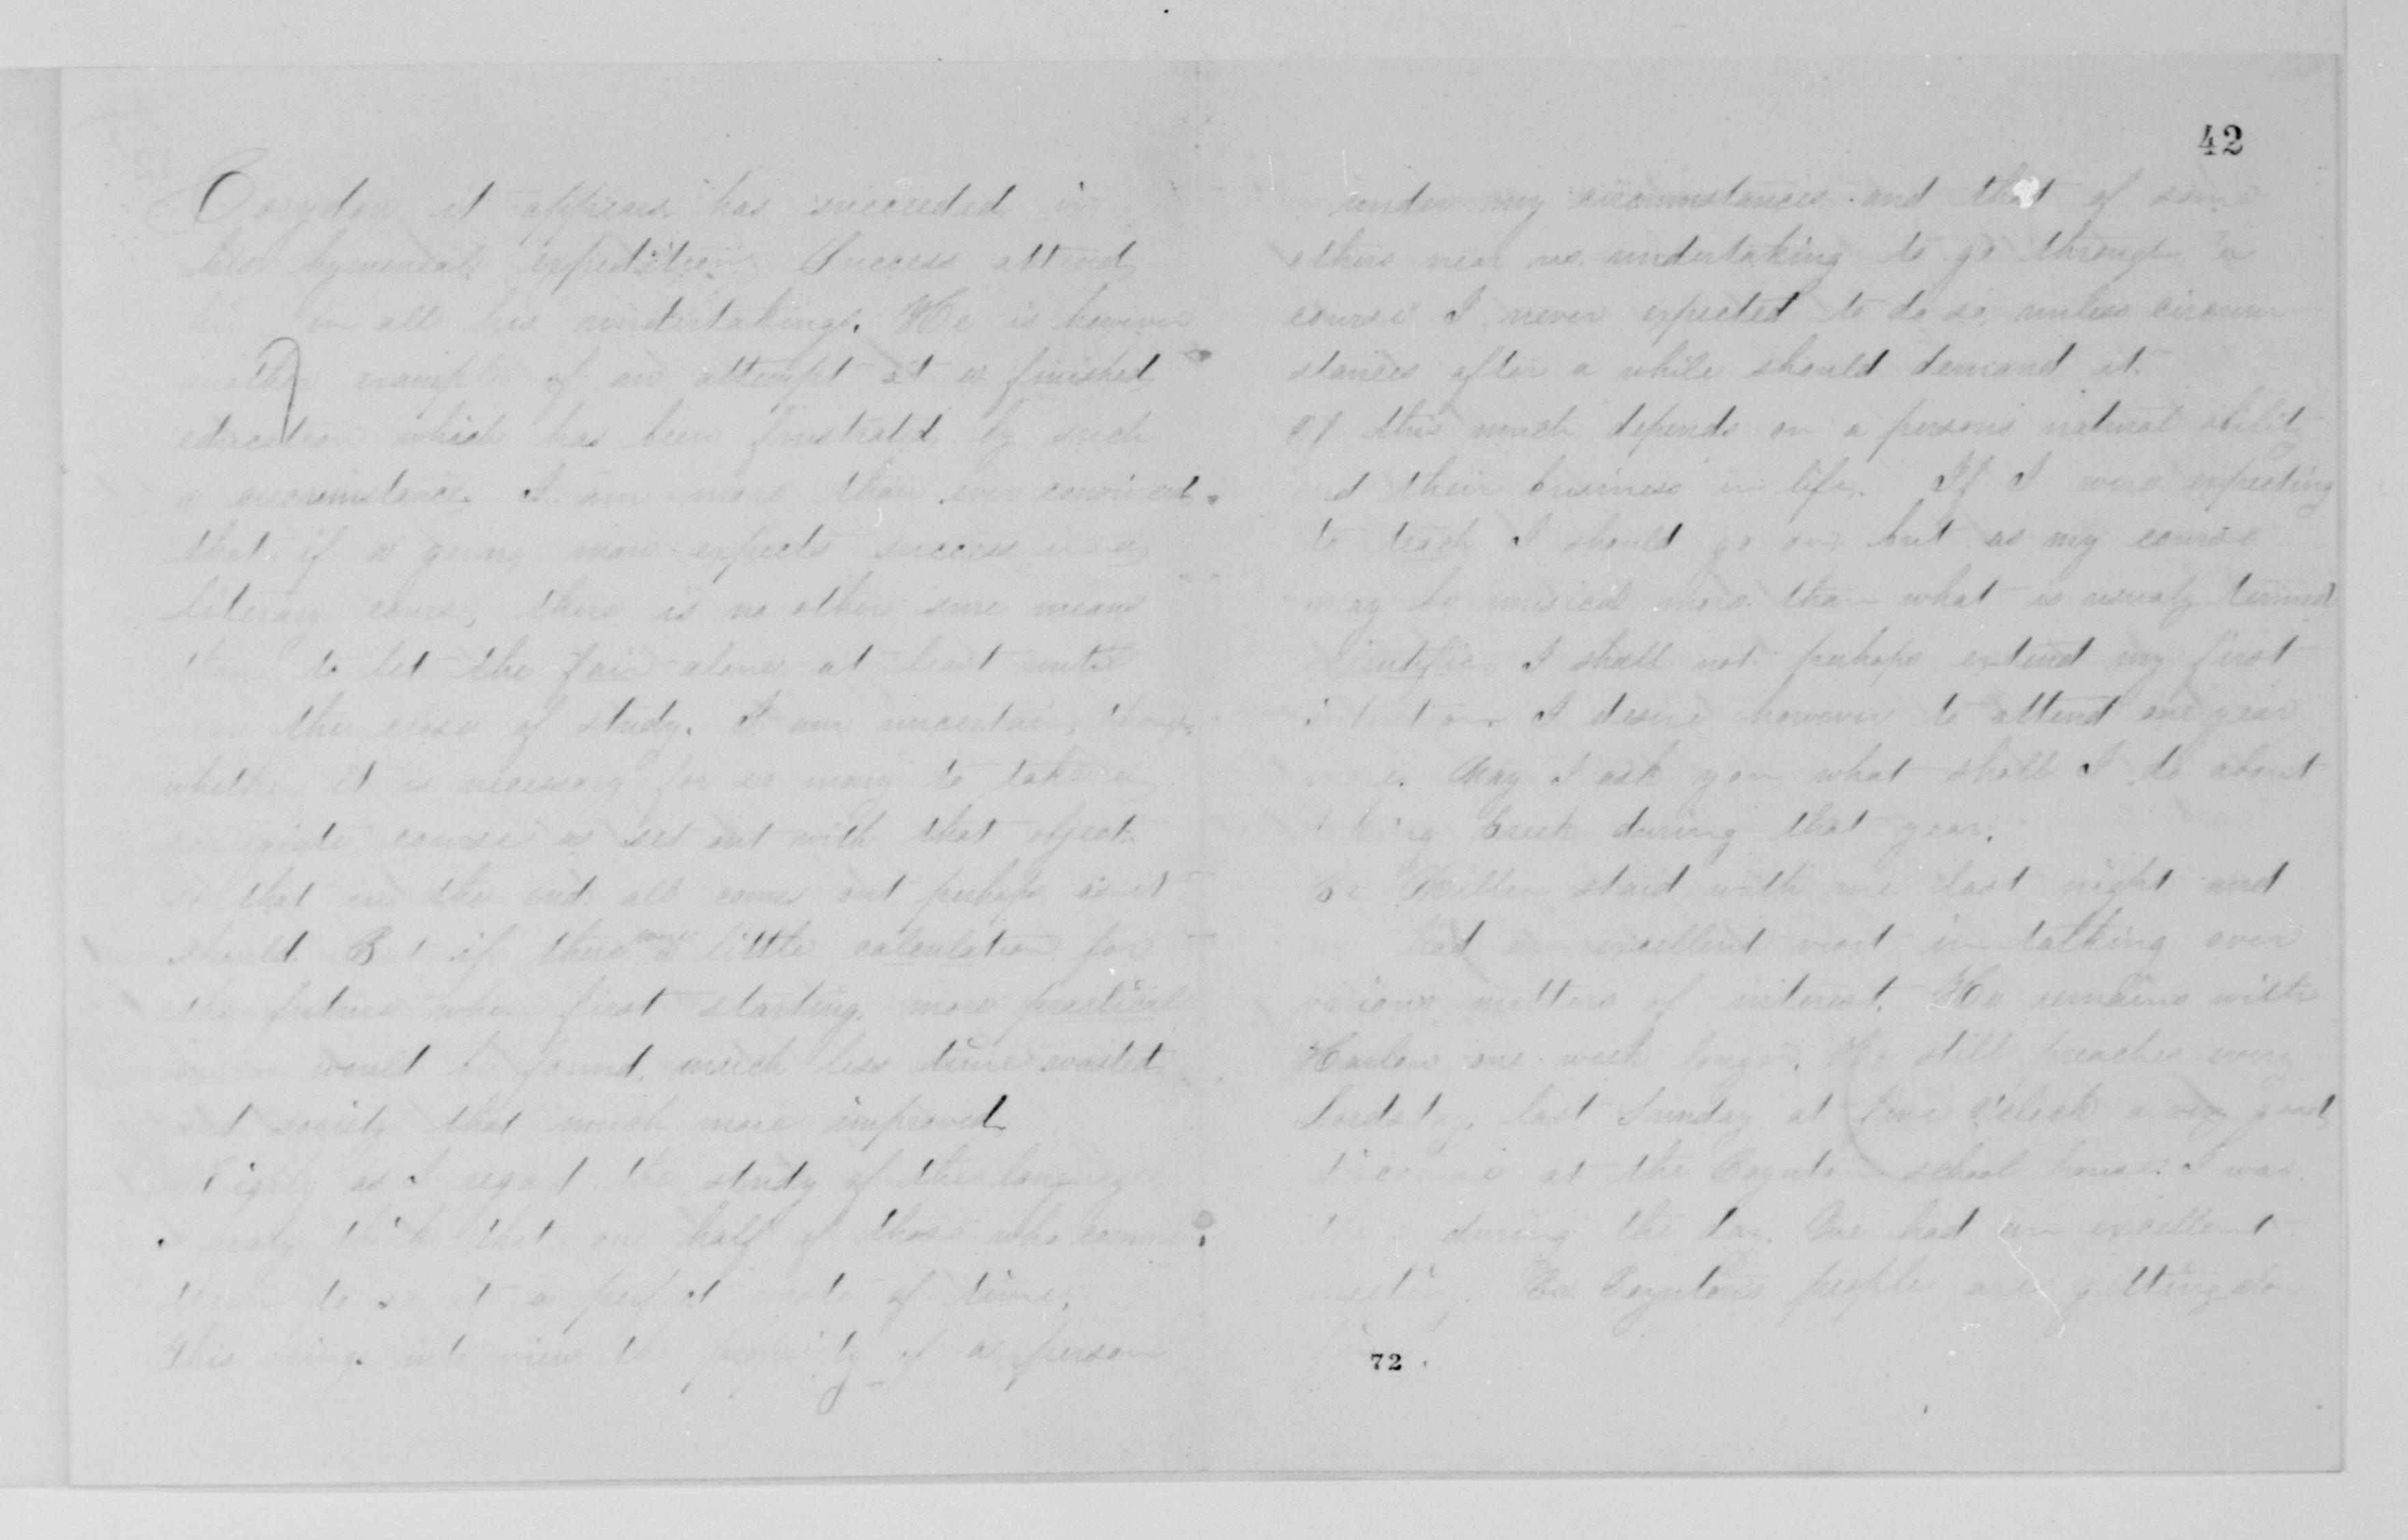 Corydon it appears has succeeded in
his hymeneal expedition. Success attend
him in all his undertakings. He is however
another example of an attempt at a finished
education which has been frustrated by such
a circumstance. I am more than ever convinced
that if a young man expects success in a
literary course, there is no other sure means
than to let the fair alone at least until
near the close of study. I am uncertain, though,
whether it is necessary for so many to take a
course as set out with that object.
so that in the end all comes out perhaps as it
should. But if there were a little calculation for
the future when first starting, more practical
would be found, much less time wasted
and society that much more improved.
Highly as I regard the study of the language
I realy think that one half of those who commence
them do so at a perfect waste of time.
This brings into view the propriety of a person
42
under my circumstances and that of some
others near us undertaking to go through a
course. I never expected to do so, unless circum
stances after a while should demand it.
Of this much depends on a persons natural ability
and their business in life. If I were expecting
to teach I should go on, but as my course
may be musical more than what is usualy termed
scientific, I shall not perhaps extend my first
intention. I desire however to attend one year
more. May I ask you what shall I do about
taking Greek during that year.
Miller staid with me last night and
had an excellent visit in talking over
various matters of interest. He remains with
Harlow one week longer. He still preaches every
Lordsday, last Sunday at five O'clock a very good
discourse at the Boynton school house. I was
there during the day. We had an excellent
meeting. Boyntons people are getting along
72